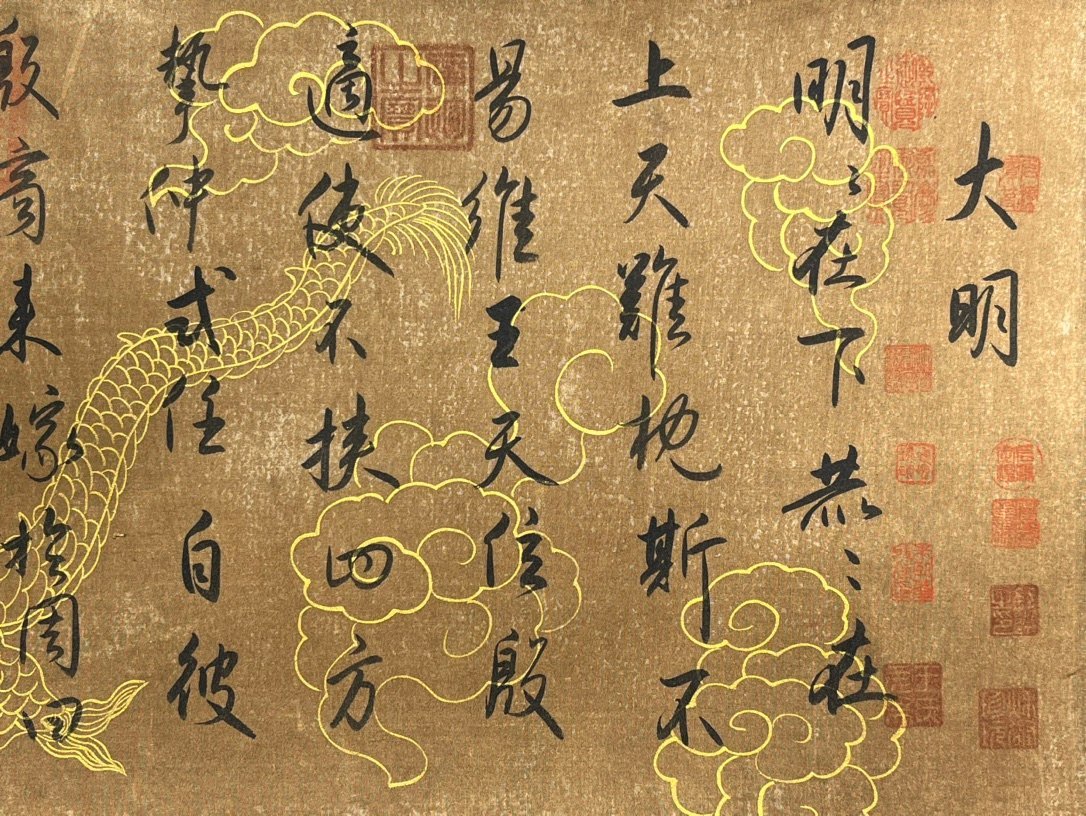 大明
明〻在下赫〻在
上天難枕斯不
易維王天位殷
適使不挾四方
摯仲式任自彼
殷商来嫁於周曰